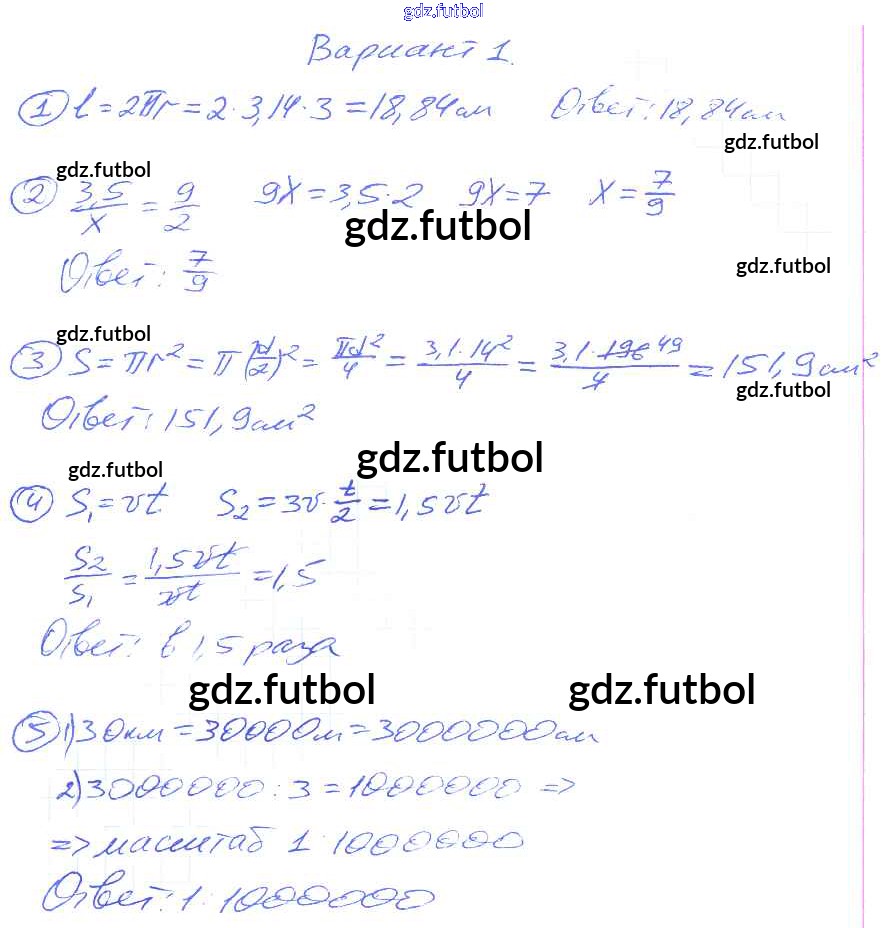 gdz.futbol
Вариант 1.
① l = 2πr = 2·3,14·3 = 18,84см Ответ: 18,84см
gdz.futbol
gdz.futbol
② 3,5/x = 9/2 9x = 3,5·2 9x = 7 x = 7/9
gdz.futbol
Ответ: 7/9
gdz.futbol
gdz.futbol
③ S = πr² = π(d/2)² = πd²/4 = 3,1·14²/4 = 3,1·196 49/4 = 151,9см²
gdz.futbol
Ответ: 151,9см²
gdz.futbol
gdz.futbol
④ S₁ = vt S₂ = 3v·t/2 = 1,5vt
S₂/S₁ = 1,5vt/vt = 1,5
Ответ: в 1,5 раза
gdz.futbol gdz.futbol
⑤ 1) 30км = 30000м = 3000000см
2) 3000000 : 3 = 1000000 =>
=> масштаб 1:1000000
Ответ: 1:1000000